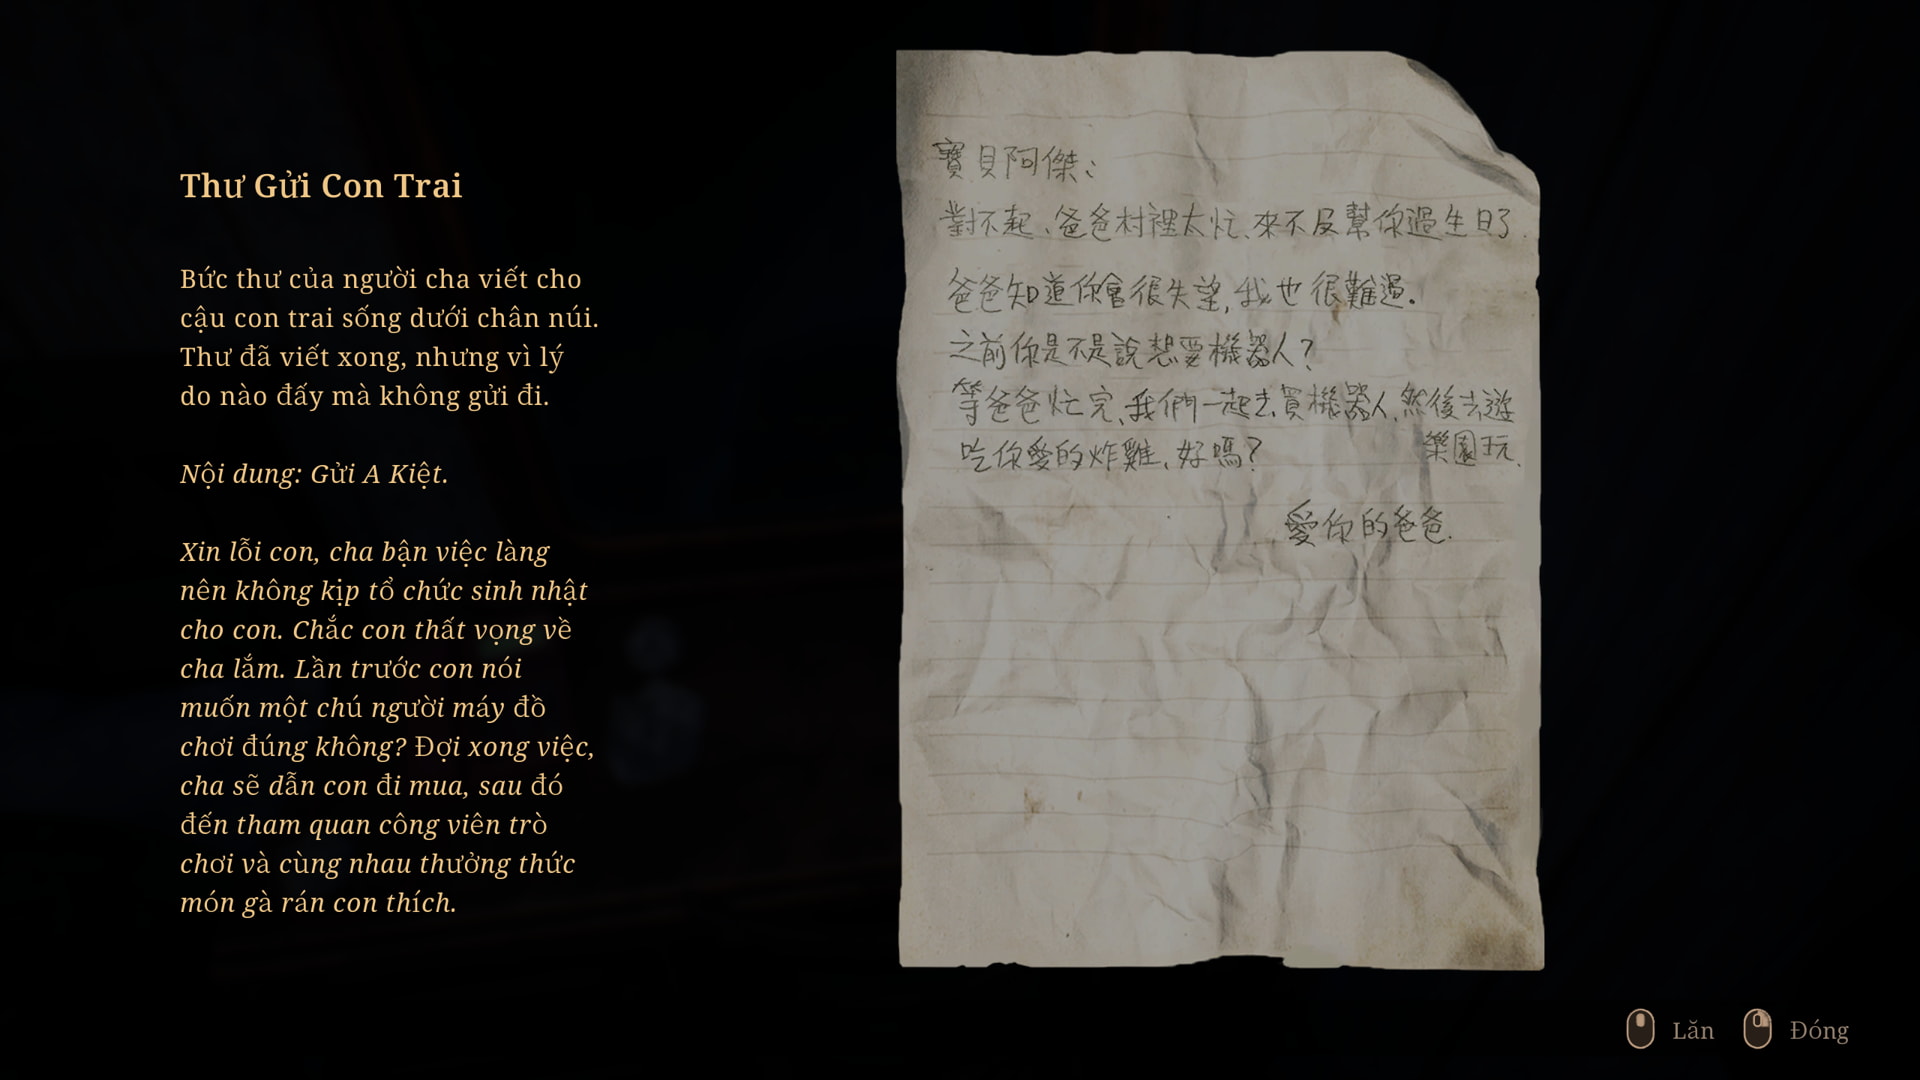 Thư Gửi Con Trai
Bức thư của người cha viết cho
cậu con trai sống dưới chân núi.
Thư đã viết xong, nhưng vì lý
do nào đấy mà không gửi đi.
Nội dung: Gửi A Kiệt.
Xin lỗi con, cha bận việc làng
nên không kịp tổ chức sinh nhật
cho con. Chắc con thất vọng về
cha lắm. Lần trước con nói
muốn một chú người máy đồ
chơi đúng không? Đợi xong việc,
cha sẽ dẫn con đi mua, sau đó
đến tham quan công viên trò
chơi và cùng nhau thưởng thức
món gà rán con thích.
寶貝阿傑:
對不起、爸爸村裡太忙、來不及幫你過生日了.
爸爸知道你會很失望,我也很難過.
之前你是不是說想要機器人?
等爸爸忙完、我們一起去買機器人、然後去遊
樂園玩、
吃你愛的炸雞、好嗎?
愛你的爸爸.
Lăn
Đóng